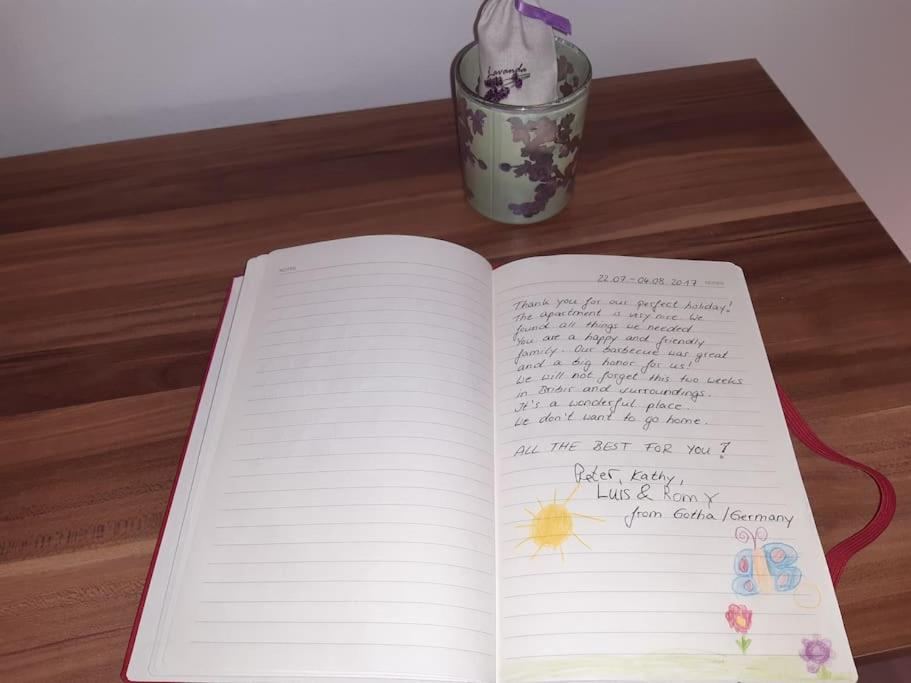 Lavanda
NOTES
22.07 - 04.08.2017 NOTES
Thank you for our perfect holiday!
The apartment is very nice. We
found all things we needed.
You are a happy and friendly
family. Our barbecue was great
and a big honor for us!
We will not forget this two weeks
in Bribir and surroundings.
It's a wonderful place.
We don't want to go home.
ALL THE BEST FOR YOU!
Peter, Kathy,
Luis & Romy
from Gotha/Germany